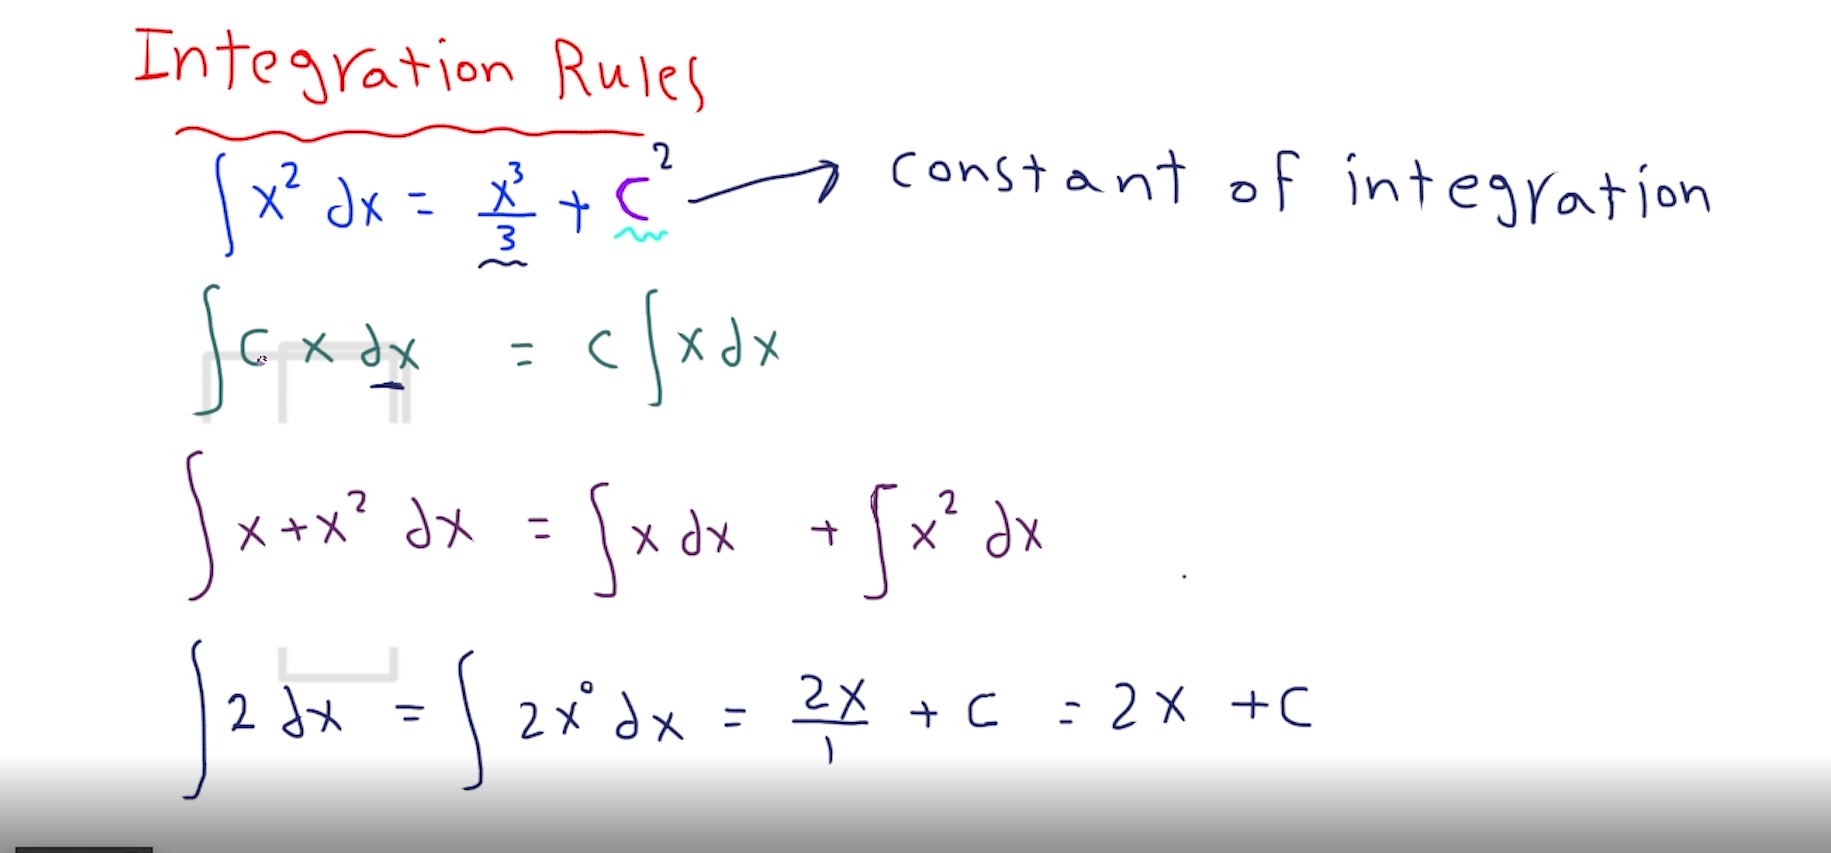 Integration Rules
∫ x² dx = x³/3 + C² → constant of integration
∫ c x dx = c ∫ x dx
∫ x + x² dx = ∫ x dx + ∫ x² dx
∫ 2 dx = ∫ 2x⁰ dx = 2x/1 + C = 2x + C